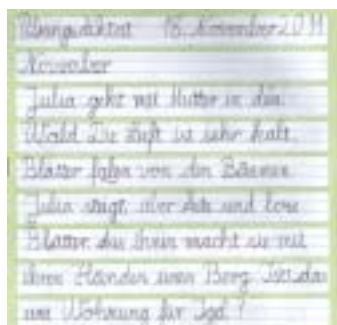 Übungsdiktat 16. November 2011
November
Julia geht mit Mutter in den
Wald Die Luft ist sehr kalt.
Blätter falen von den Bäumen
Julia steigt über und
Blätter. macht sie mit
ihren Händen einen Berg Ist das
Wohnung für Igel?